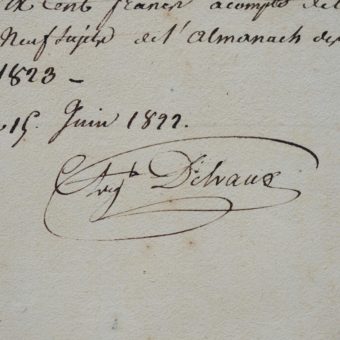 ix Cent francs acompte de l
Neuf sujets de l'Almanach des
1823 -
15. Juin 1822.
Aug. Delvaux